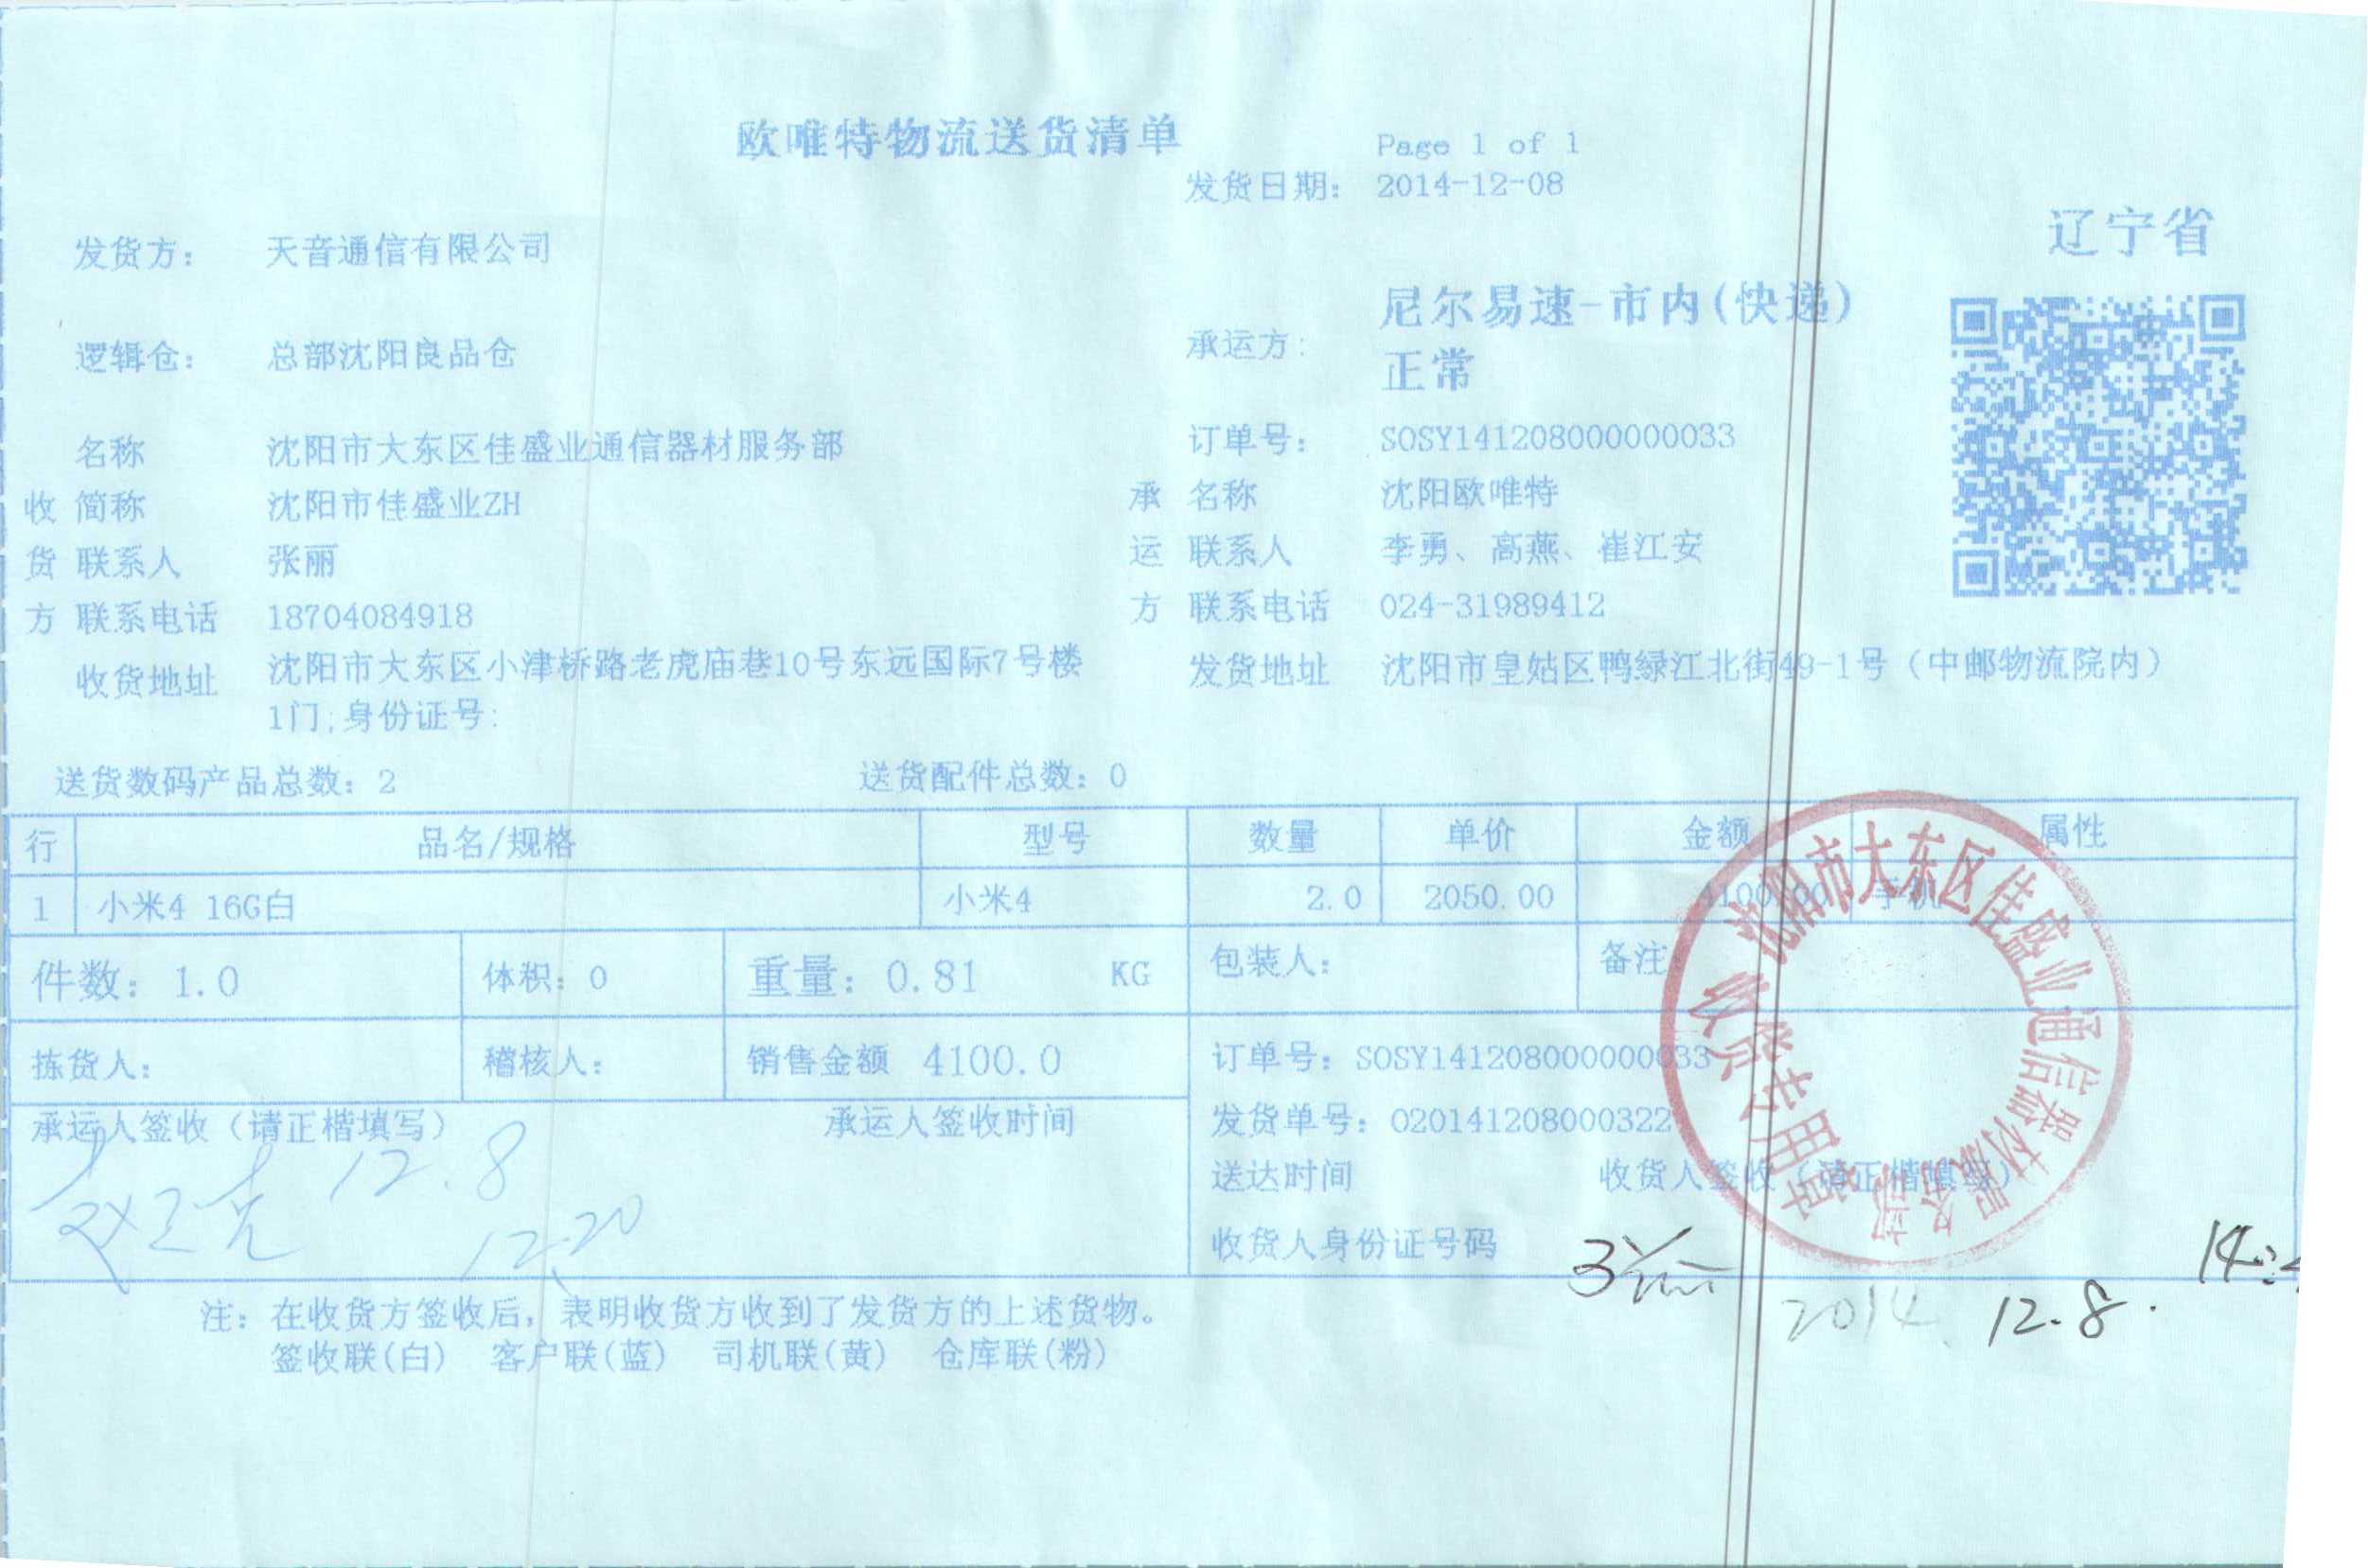 欧唯特物流送货清单
Page 1 of 1
发货日期: 2014-12-08
辽宁省
发货方: 天音通信有限公司
逻辑仓: 总部沈阳良品仓
承运方: 尼尔易速-市内(快递)
正常
名称 沈阳市大东区佳盛业通信器材服务部
订单号: SOSY141208000000033
收 简称 沈阳市佳盛业ZH
承 名称 沈阳欧唯特
货 联系人 张丽
运 联系人 李勇、高燕、崔江安
方 联系电话 18704084918
方 联系电话 024-31989412
收货地址 沈阳市大东区小津桥路老虎庙巷10号东远国际7号楼
1门;身份证号:
发货地址 沈阳市皇姑区鸭绿江北街49-1号（中邮物流院内）
送货数码产品总数: 2 送货配件总数: 0
行 品名/规格 型号 数量 单价 金额 属性
1 小米4 16G白 小米4 2.0 2050.00 4100.00 手机
件数: 1.0 体积: 0 重量: 0.81 KG 包装人: 备注
拣货人: 稽核人: 销售金额 4100.0
订单号: SOSY141208000000033
承运人签收（请正楷填写） 承运人签收时间
发货单号: O20141208000322
送达时间 收货人签收（请正楷填写）
收货人身份证号码
12.8
12.20
2014. 12.8.
注: 在收货方签收后, 表明收货方收到了发货方的上述货物。
签收联(白) 客户联(蓝) 司机联(黄) 仓库联(粉)
沈阳市大东区佳盛业通信器材服务部
收货专用章